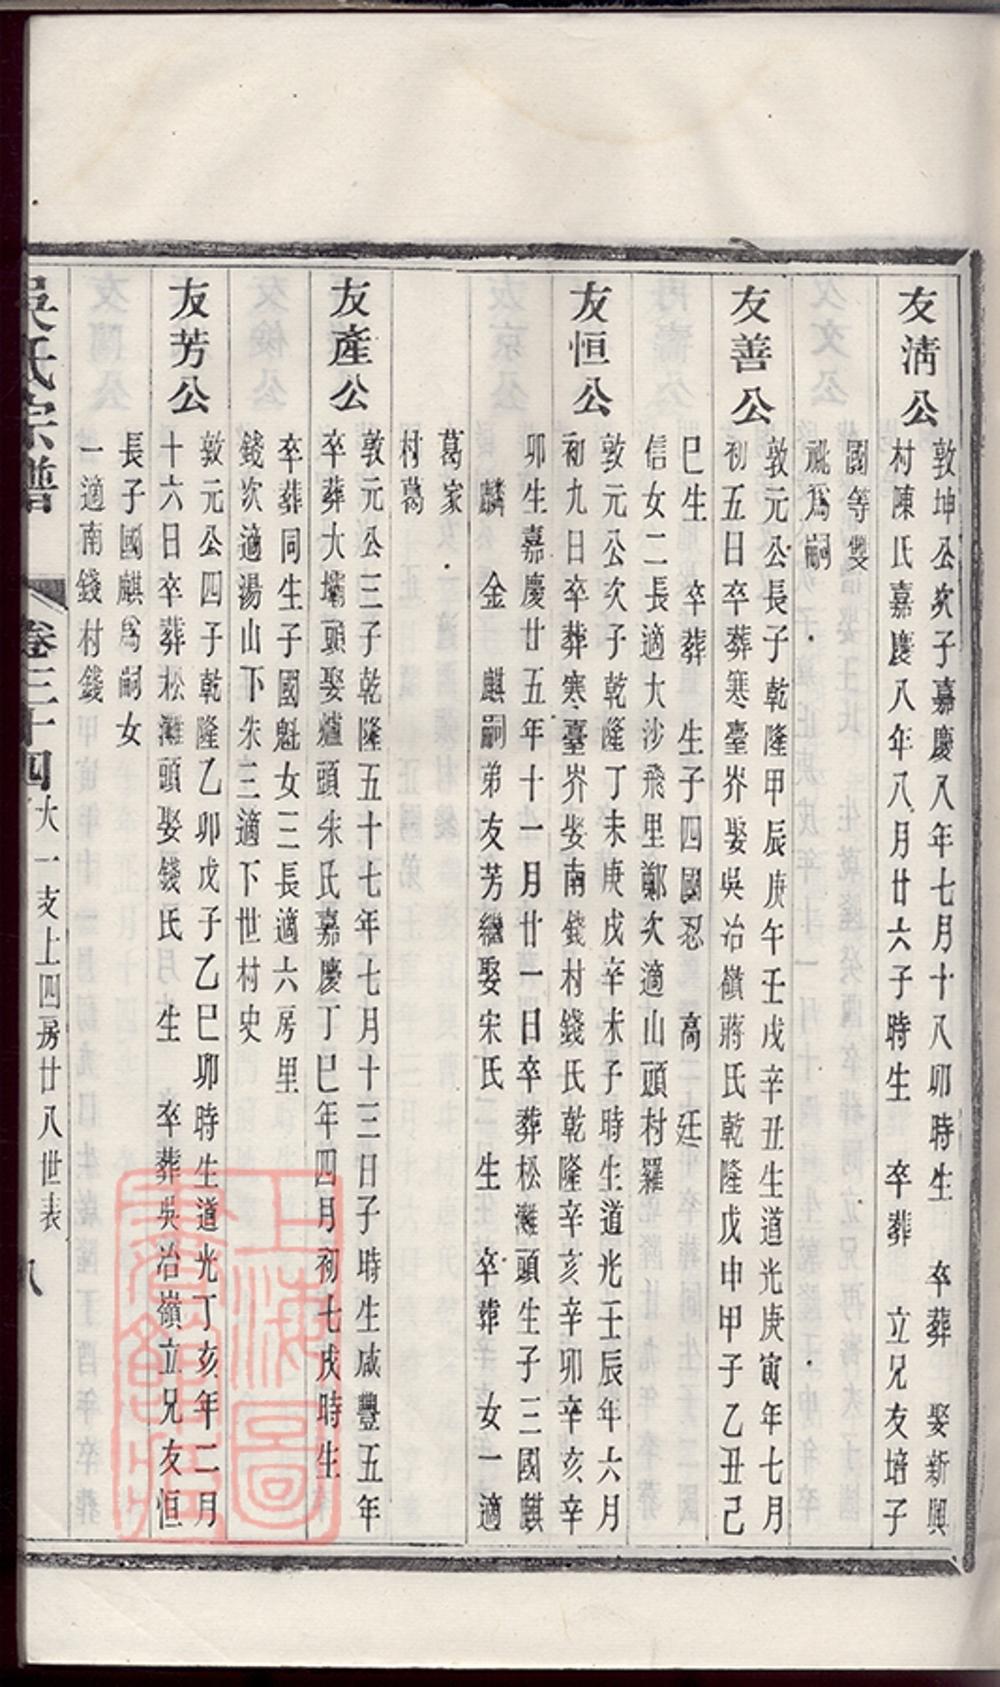 友淸公
敦坤公次子嘉慶八年七月十八卯時生 卒葬 娶新興
村陳氏嘉慶八年八月廿六子時生 卒葬 立兄友培子
國等雙
祧爲嗣
友善公
敦元公長子乾隆甲辰庚午壬戌辛丑生道光庚寅年七月
初五日卒葬寒臺岕娶吳冶嶺蔣氏乾隆戊申甲子乙丑己
巳生 卒葬 生子四國忍 高 廷
信女二長適大沙飛里鄭次適山頭村羅
友恒公
敦元公次子乾隆丁未庚戌辛未子時生道光壬辰年六月
初九日卒葬寒臺岕娶南錢村錢氏乾隆辛亥辛卯辛亥辛
卯生嘉慶廿五年十一月廿一日卒葬松灘頭生子三國麒
麟 金 麒嗣弟友芳繼娶宋氏 生 卒葬 女一適
葛家
村葛
友產公
敦元公三子乾隆五十七年七月十三日子時生咸豐五年
卒葬大壩頭娶爐頭朱氏嘉慶丁巳年四月初七戌時生
卒葬同生子國魁女三長適六房里
錢次適湯山下朱三適下世村史
友芳公
敦元公四子乾隆乙卯戊子乙巳卯時生道光丁亥年二月
十六日卒葬松灘頭娶錢氏 生 卒葬吳冶嶺立兄友恒
長子國麒爲嗣女
一適南錢村錢
吳氏宗譜 卷三十四 大一支上四房廿八世表 八
上海圖書館藏